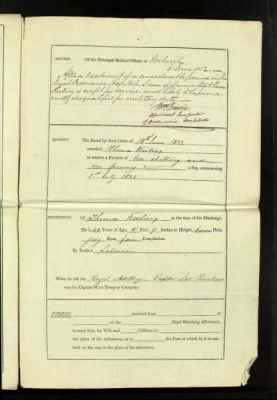 OPINION Of the Principal Medical Officer, at Woolwich
After a treatment of a considerable period in the
Royal Ordnance Hospital I am of opinion that Thomas
Keating is unfit for service and likely to be perma-
nently disqualified for military duty
DECISION The Board by their Order of 18th June 1833
awarded Thomas Keating
to receive a Pension of One shilling and
one penny a day, commencing
1st July 1833
DESCRIPTION Of Thomas Keating at the time of his Discharge.
He is 40 Years of Age, 5 Feet, 9 Inches in Height, brown Hair,
grey Eyes, fair Complexion.
By Trade a Laborer
When he left the Royal Artillery Captn
was the Captain of his Troop or Company.
MARCHING ALLOWANCE received from of
on the Days' Marching Allowance,
to carry him, his Wife and Children to
the place of his residence, or to the Port at which he is to em-
bark on the way to the place of his residence.